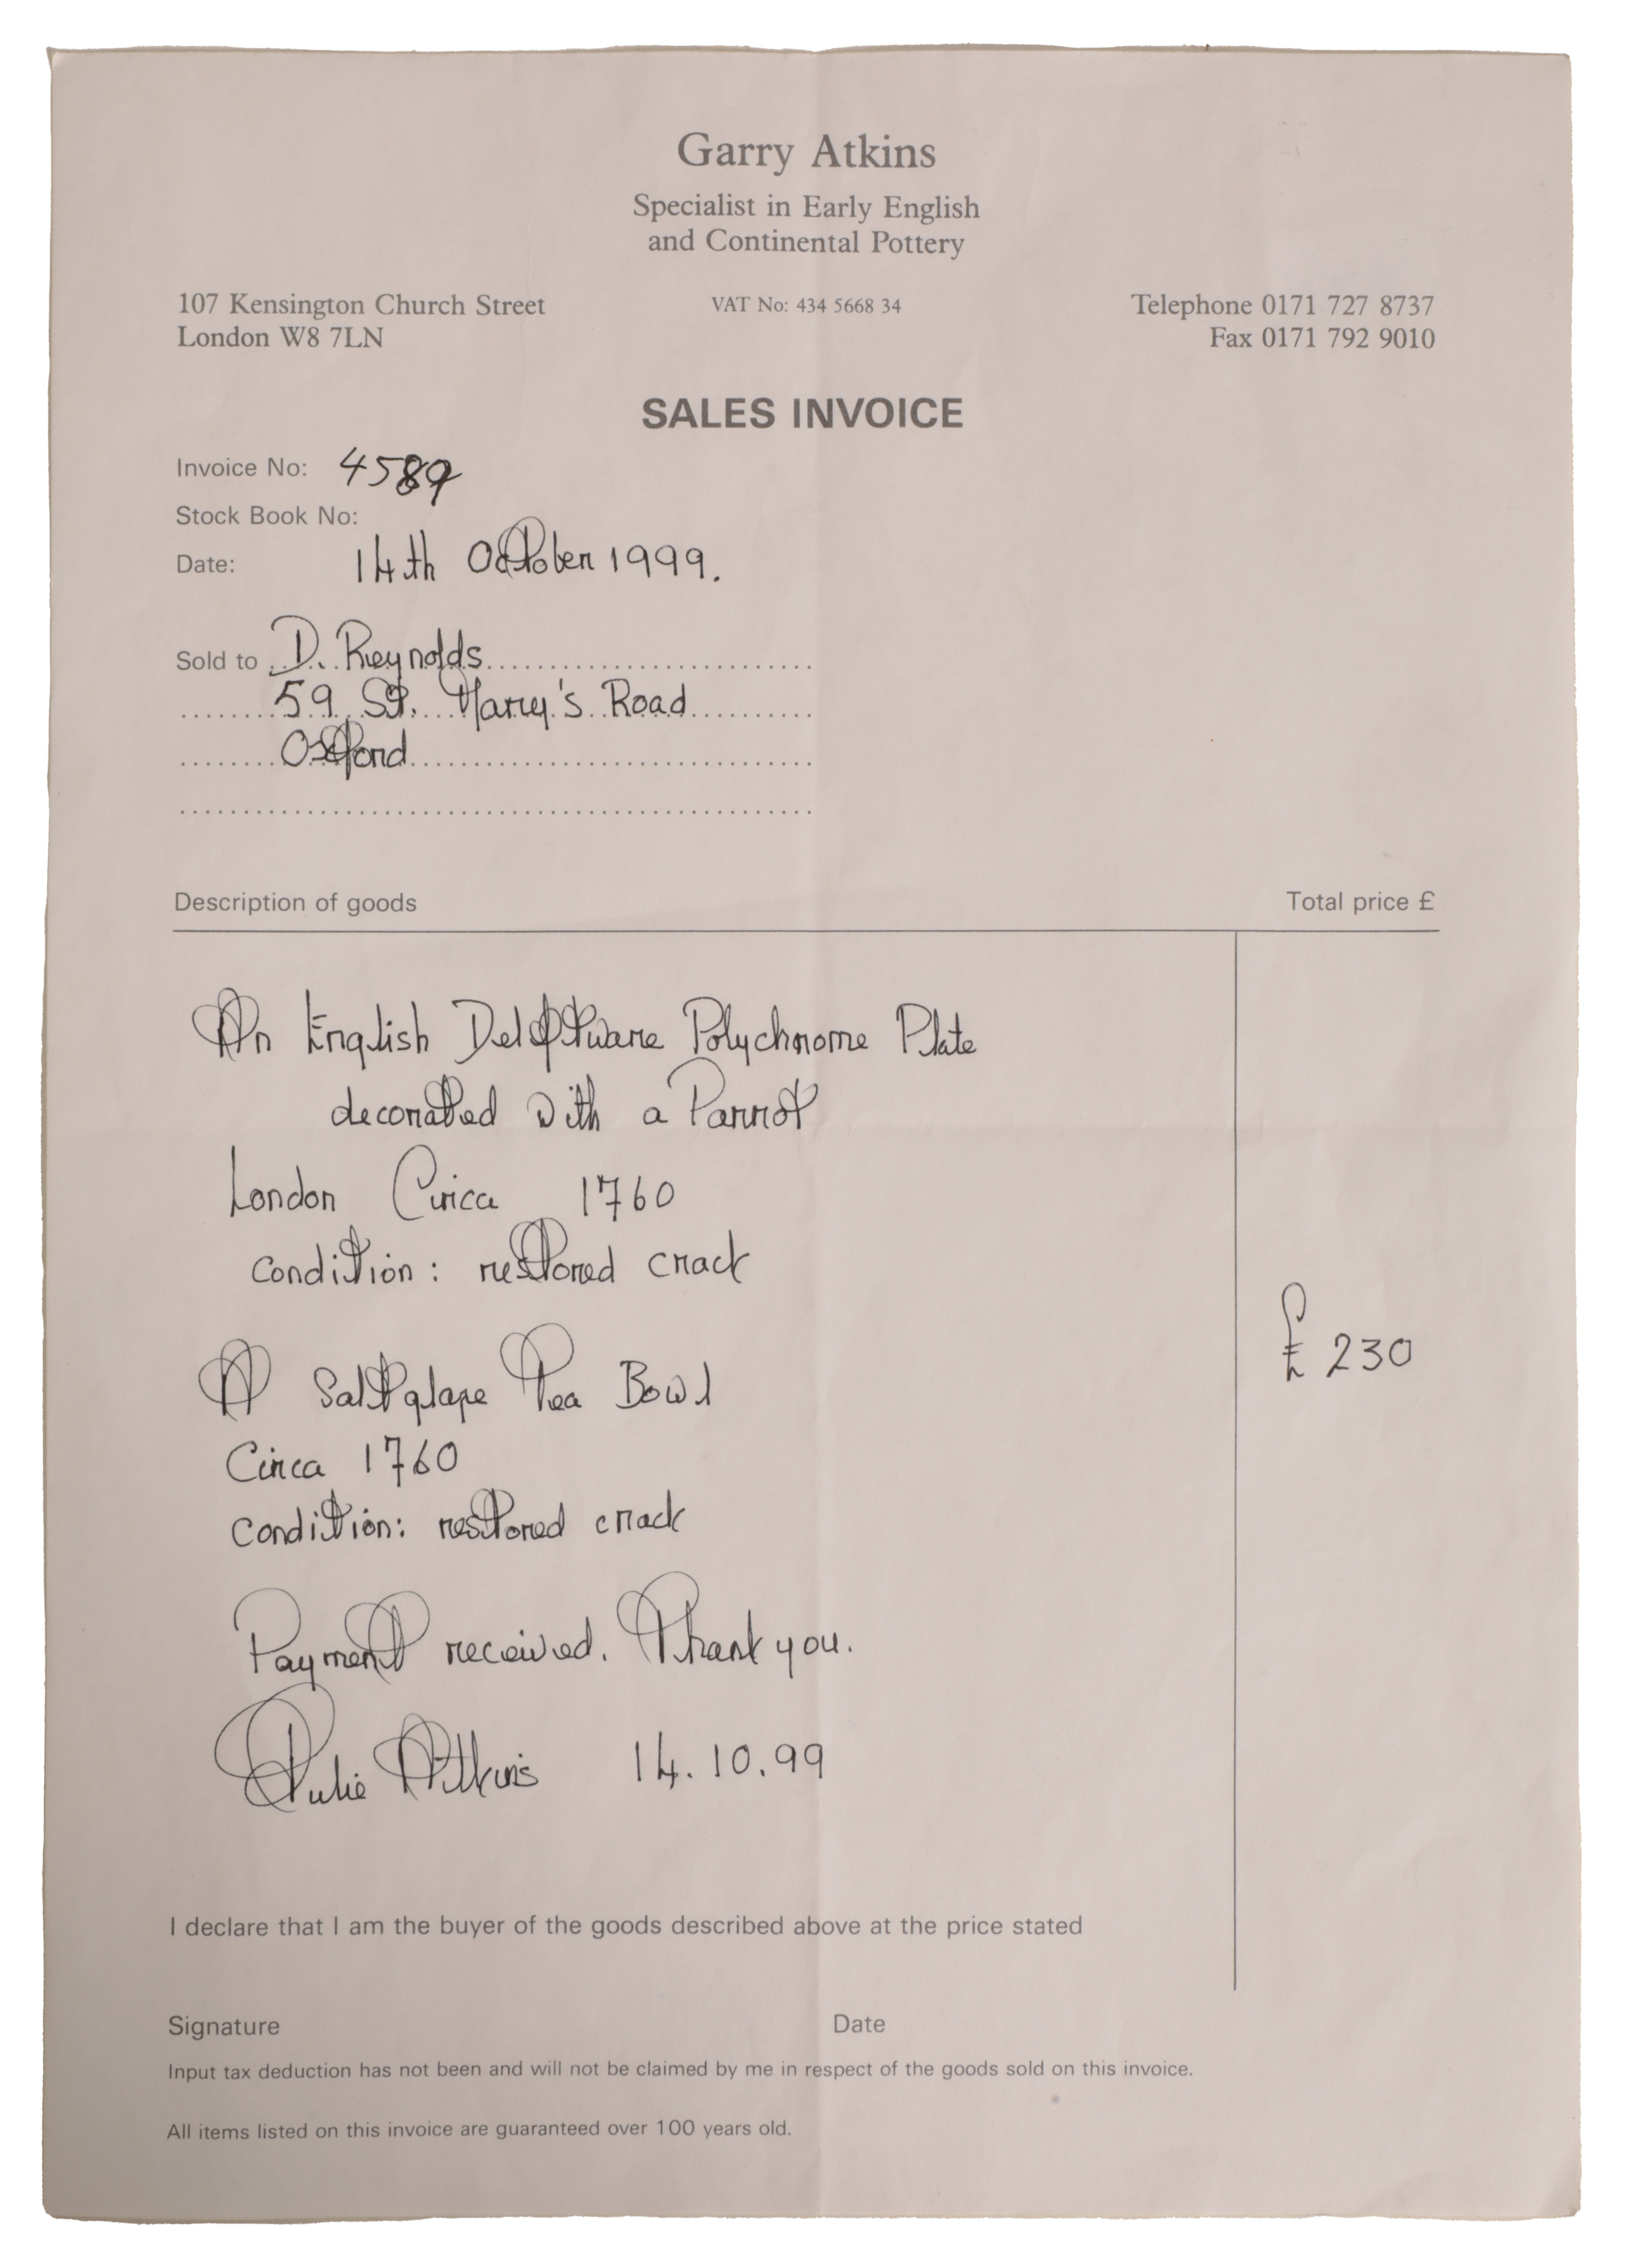 Garry Atkins
Specialist in Early English
and Continental Pottery
107 Kensington Church Street
London W8 7LN
VAT No: 434 5668 34
Telephone 0171 727 8737
Fax 0171 792 9010
SALES INVOICE
Invoice No: 4589
Stock Book No:
Date: 14th October 1999.
Sold to D. Reynolds
59 St. Mary's Road
Oxford
Description of goods
Total price £
An English Delftware Polychrome Plate
decorated with a Parrot
London Circa 1760
condition: restored crack
£230
A Saltglaze Tea Bowl
Circa 1760
condition: restored crack
Payment received. Thank you.
Julie Atkins 14.10.99
I declare that I am the buyer of the goods described above at the price stated
Signature
Date
Input tax deduction has not been and will not be claimed by me in respect of the goods sold on this invoice.
All items listed on this invoice are guaranteed over 100 years old.